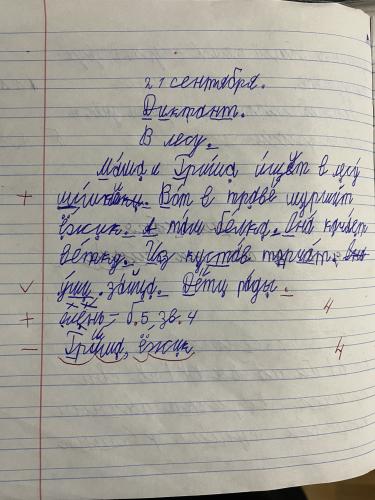 21 сентября.
Диктант.
В лесу.
Мама и Гриша ищут в лесу
шишки. Вот в траве шуршит
ёжик. А там белка. Она качает
ветку. Из кустов торчат
+ уши зайца. Дети рады.
олень - 5 зв. 4
Гриша, ёжик
4
4